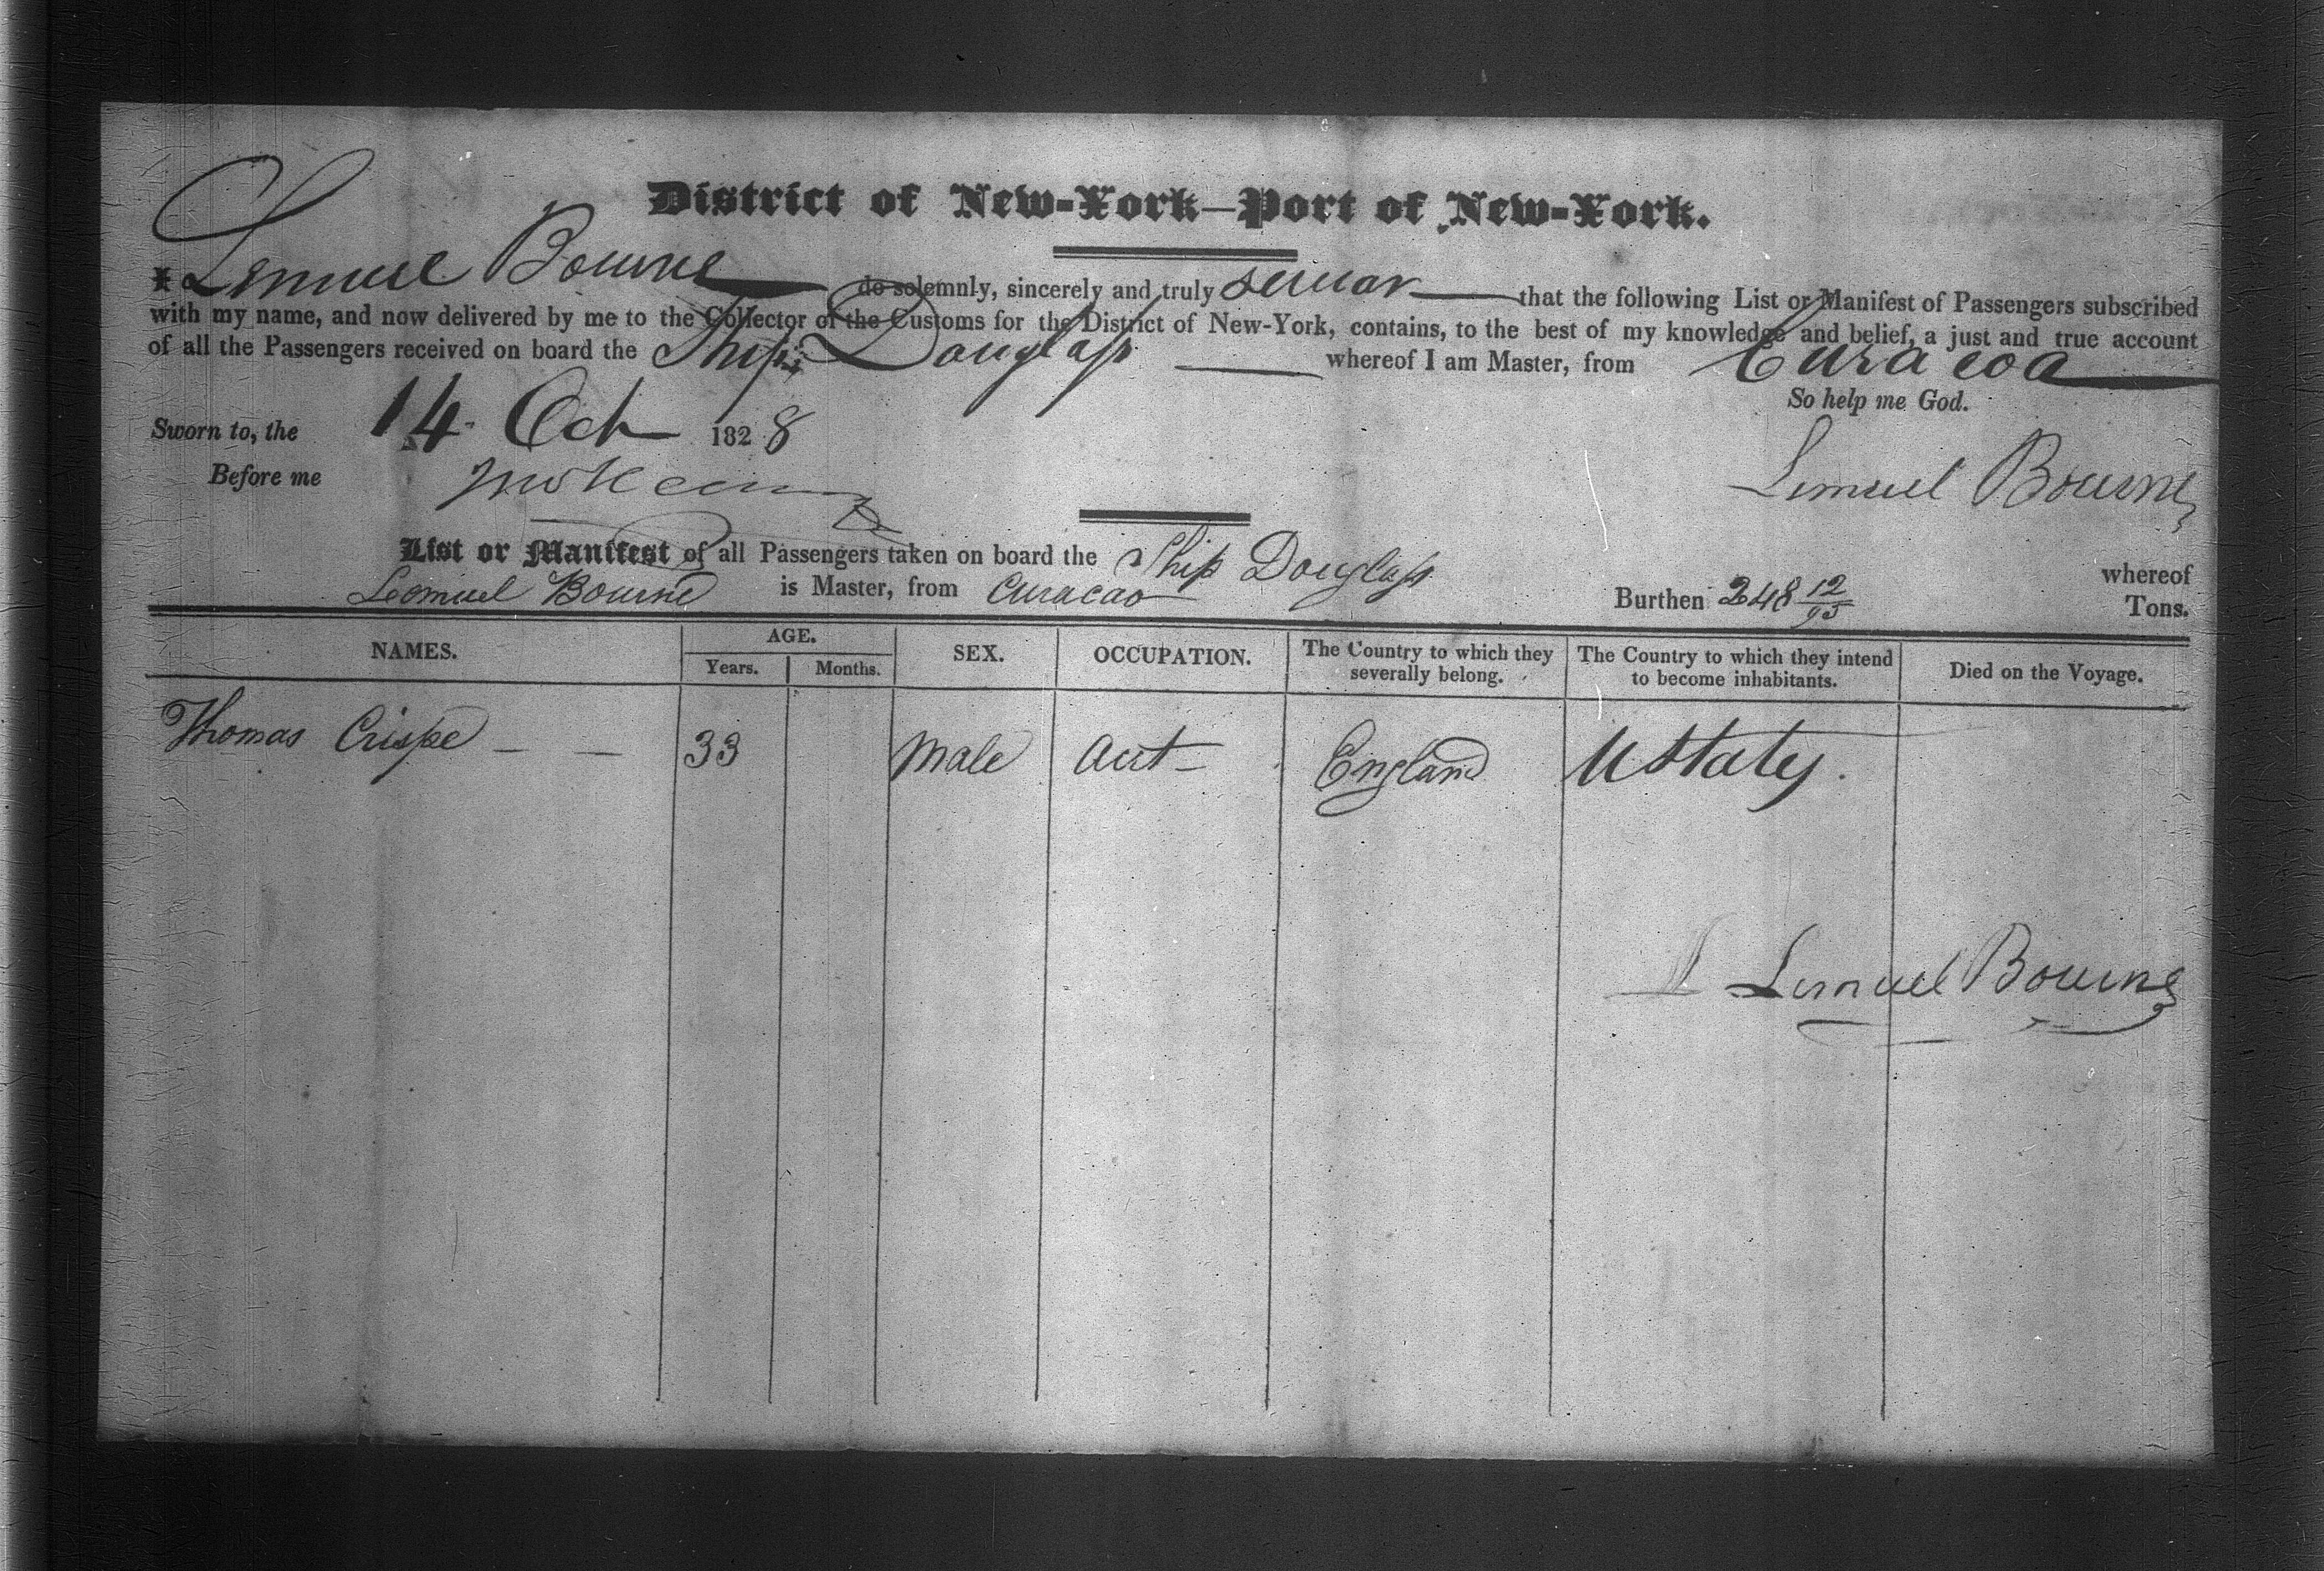 District of New-York—Port of New-York.
I Lemuel Bourne do solemnly, sincerely and truly swear that the following List or Manifest of Passengers subscribed
with my name, and now delivered by me to the Collector of the Customs for the District of New-York, contains, to the best of my knowledge and belief, a just and true account
of all the Passengers received on board the Ship Douglass whereof I am Master, from Curacoa
So help me God.
Sworn to, the 14 Oct 1828
Before me
Lemuel Bourne
List or Manifest of all Passengers taken on board the Ship Douglass whereof
Lemuel Bourne is Master, from Curacao Burthen 248 12/95 Tons.
NAMES. AGE. Years. Months. SEX. OCCUPATION. The Country to which they severally belong. The Country to which they intend to become inhabitants. Died on the Voyage.
Thomas Crispe — — 33 Male England UStates.
Lemuel Bourne